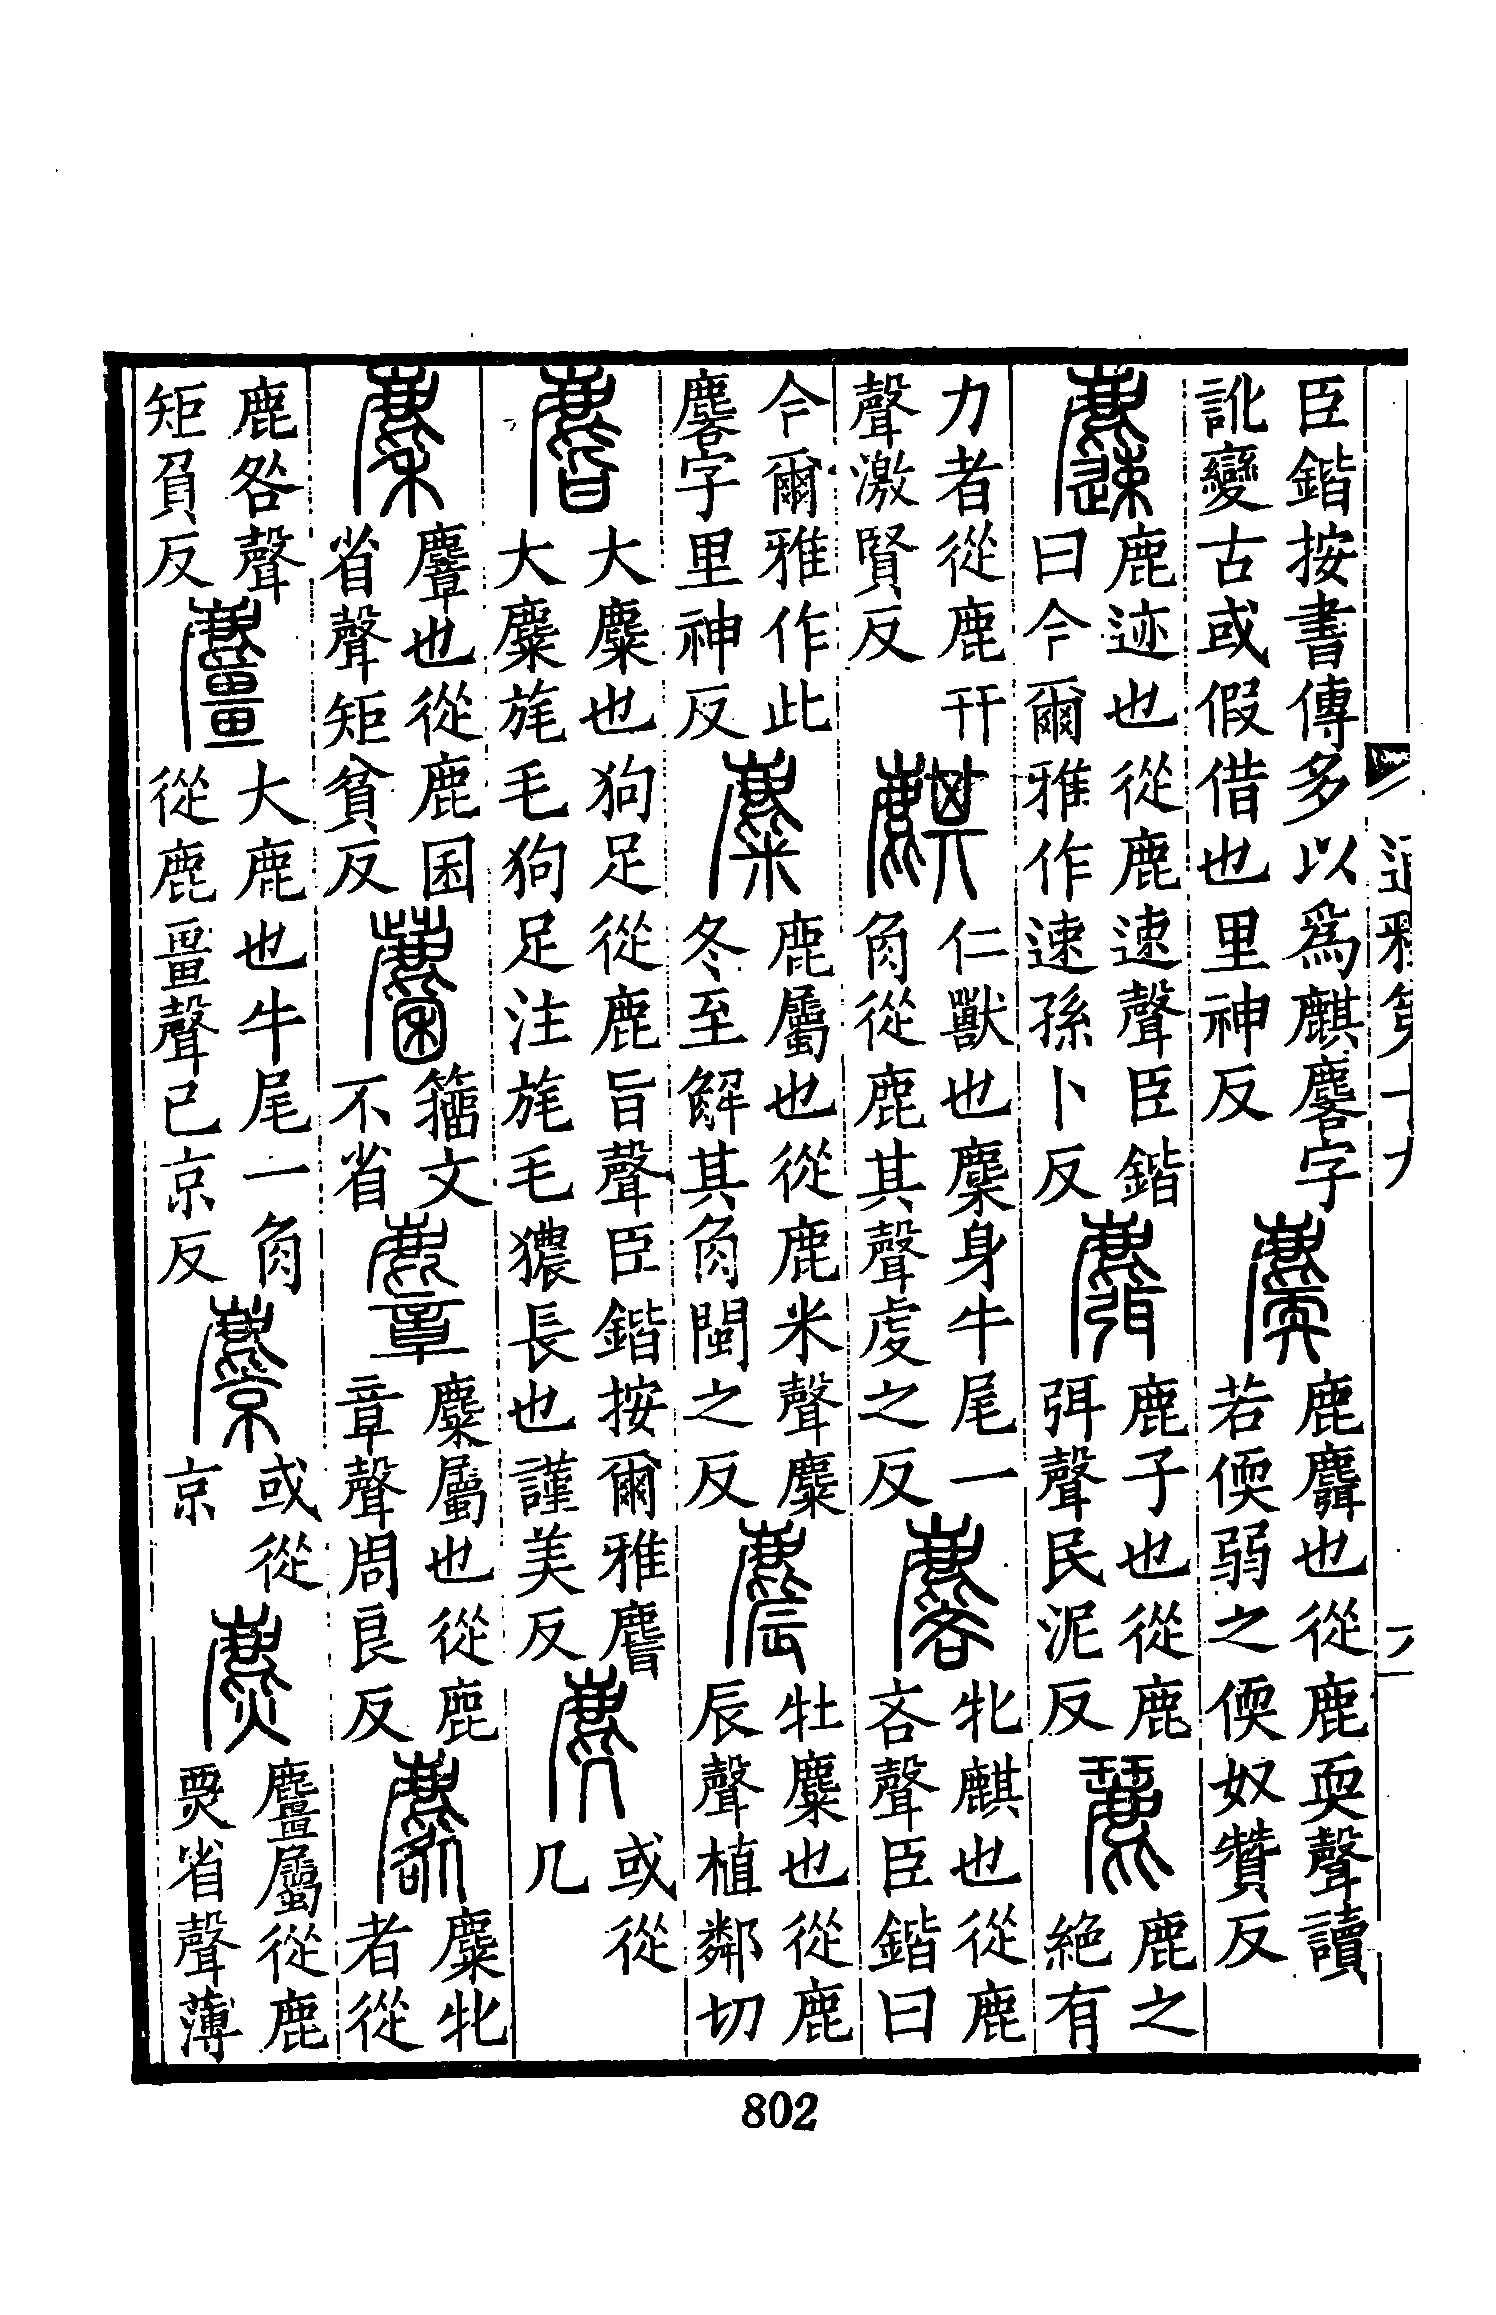 臣鍇按書傳多以爲麒麐字
訛變古或假借也里神反
鹿麛也從鹿耎聲讀
若偄弱之偄奴贊反
鹿迹也從鹿速聲臣鍇
曰今爾雅作速孫卜反
麛
鹿子也從鹿
弭聲民泥反
麗
鹿之
絶有
力者從鹿幵
聲激賢反
麒
仁獸也麇身牛尾一
角從鹿其聲虔之反
麐
牝麒也從鹿
吝聲臣鍇曰
今爾雅作此
麐字里神反
麋
鹿屬也從鹿米聲麋
冬至解其角閩之反
麎
牡麋也從鹿
辰聲植鄰切
大麋也狗足從鹿旨聲臣鍇按爾雅
大麋旄毛狗足注旄毛獳長也謹美反
麂
或從
几
麇
麞也從鹿囷
省聲矩貧反
麕
籀文
不省
麞
麋屬也從鹿
章聲周良反
麔
麋牝
者從
鹿咎聲
矩負反
麠
大鹿也牛尾一角
從鹿畺聲己京反
麖
或從
京
麃
麠屬從鹿
票省聲薄
802